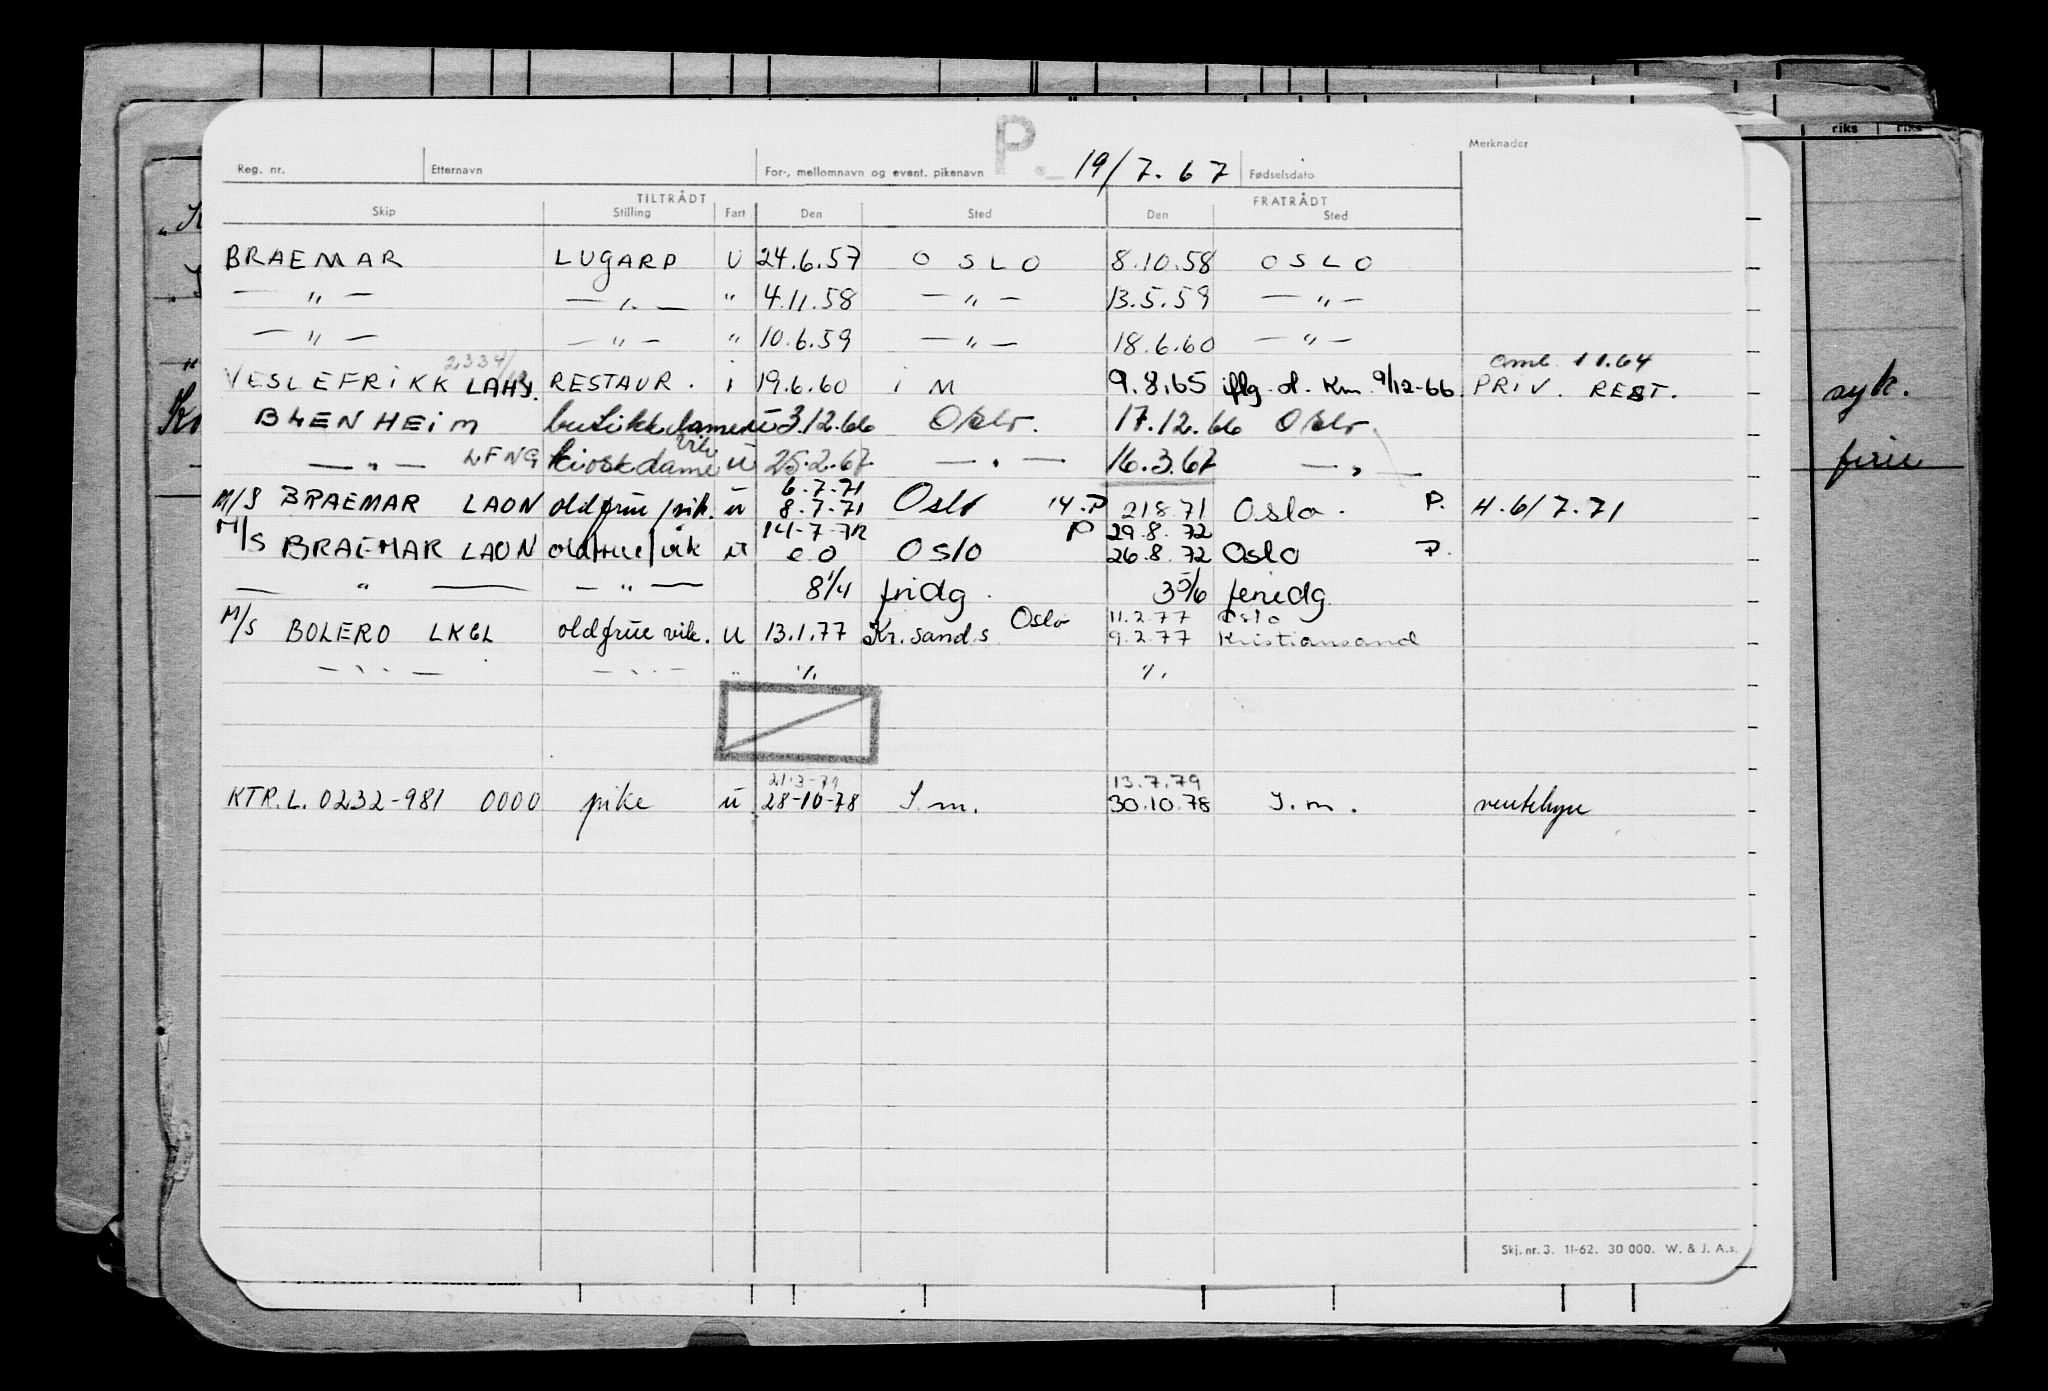 P.
Reg. nr. Etternavn For-, mellomnavn og event. pikenavn 19/7.67 Fødselsdato Merknader
riks riks
TILTRÅDT FRATRÅDT
Skip Stilling Fart Den Sted Den Sted
BRAEMAR LUGARP U 24.6.57 OSLO 8.10.58 OSLO
— " — — " — " 4.11.58 — " — 13.5.59 — " —
— " — — " — " 10.6.59 — " — 18.6.60 — " —
2334/ oml. 1 1.64
VESLEFRIKK LAHY. RESTAUR. i 19.6.60 i M 9.8.65 iflg. d. Km. 9/12-66 PRIV. REST. syk.
BLENHEIM butikkdame u 3.12.66 Oslo. 17.12.66 Oslo
vik
— " — LFNG kioskdame u 25.2.67 — " — 16.3.67 — " — ferie
6.7.71
M/S BRAEMAR LAON oldfrue/vik. u 8.7.71 Oslo 14.P 21.8.71 Oslo. P. H.6/7.71
14-7-72 P 29.8.72
M/S BRAEMAR LAON oldfrue/vik u e.o Oslo 26.8.72 Oslo P.
— " — — " — 8 1/4 fridg. 3 5/6 feriedg.
Oslo 11.2.77 Oslo
M/S BOLERO LKGL oldfrue vik. u 13.1.77 Kr.sand s. 9.2.77 Kristiansand
— " — — " — " "/. "/.
21-3-79 13.7.79
KTR.L. 0232-981 0000 pike u 28-10-78 I.m. 30.10.78 I.m. ventehyre
Skj. nr. 3. 11-62. 30 000. W. & J. A.s.